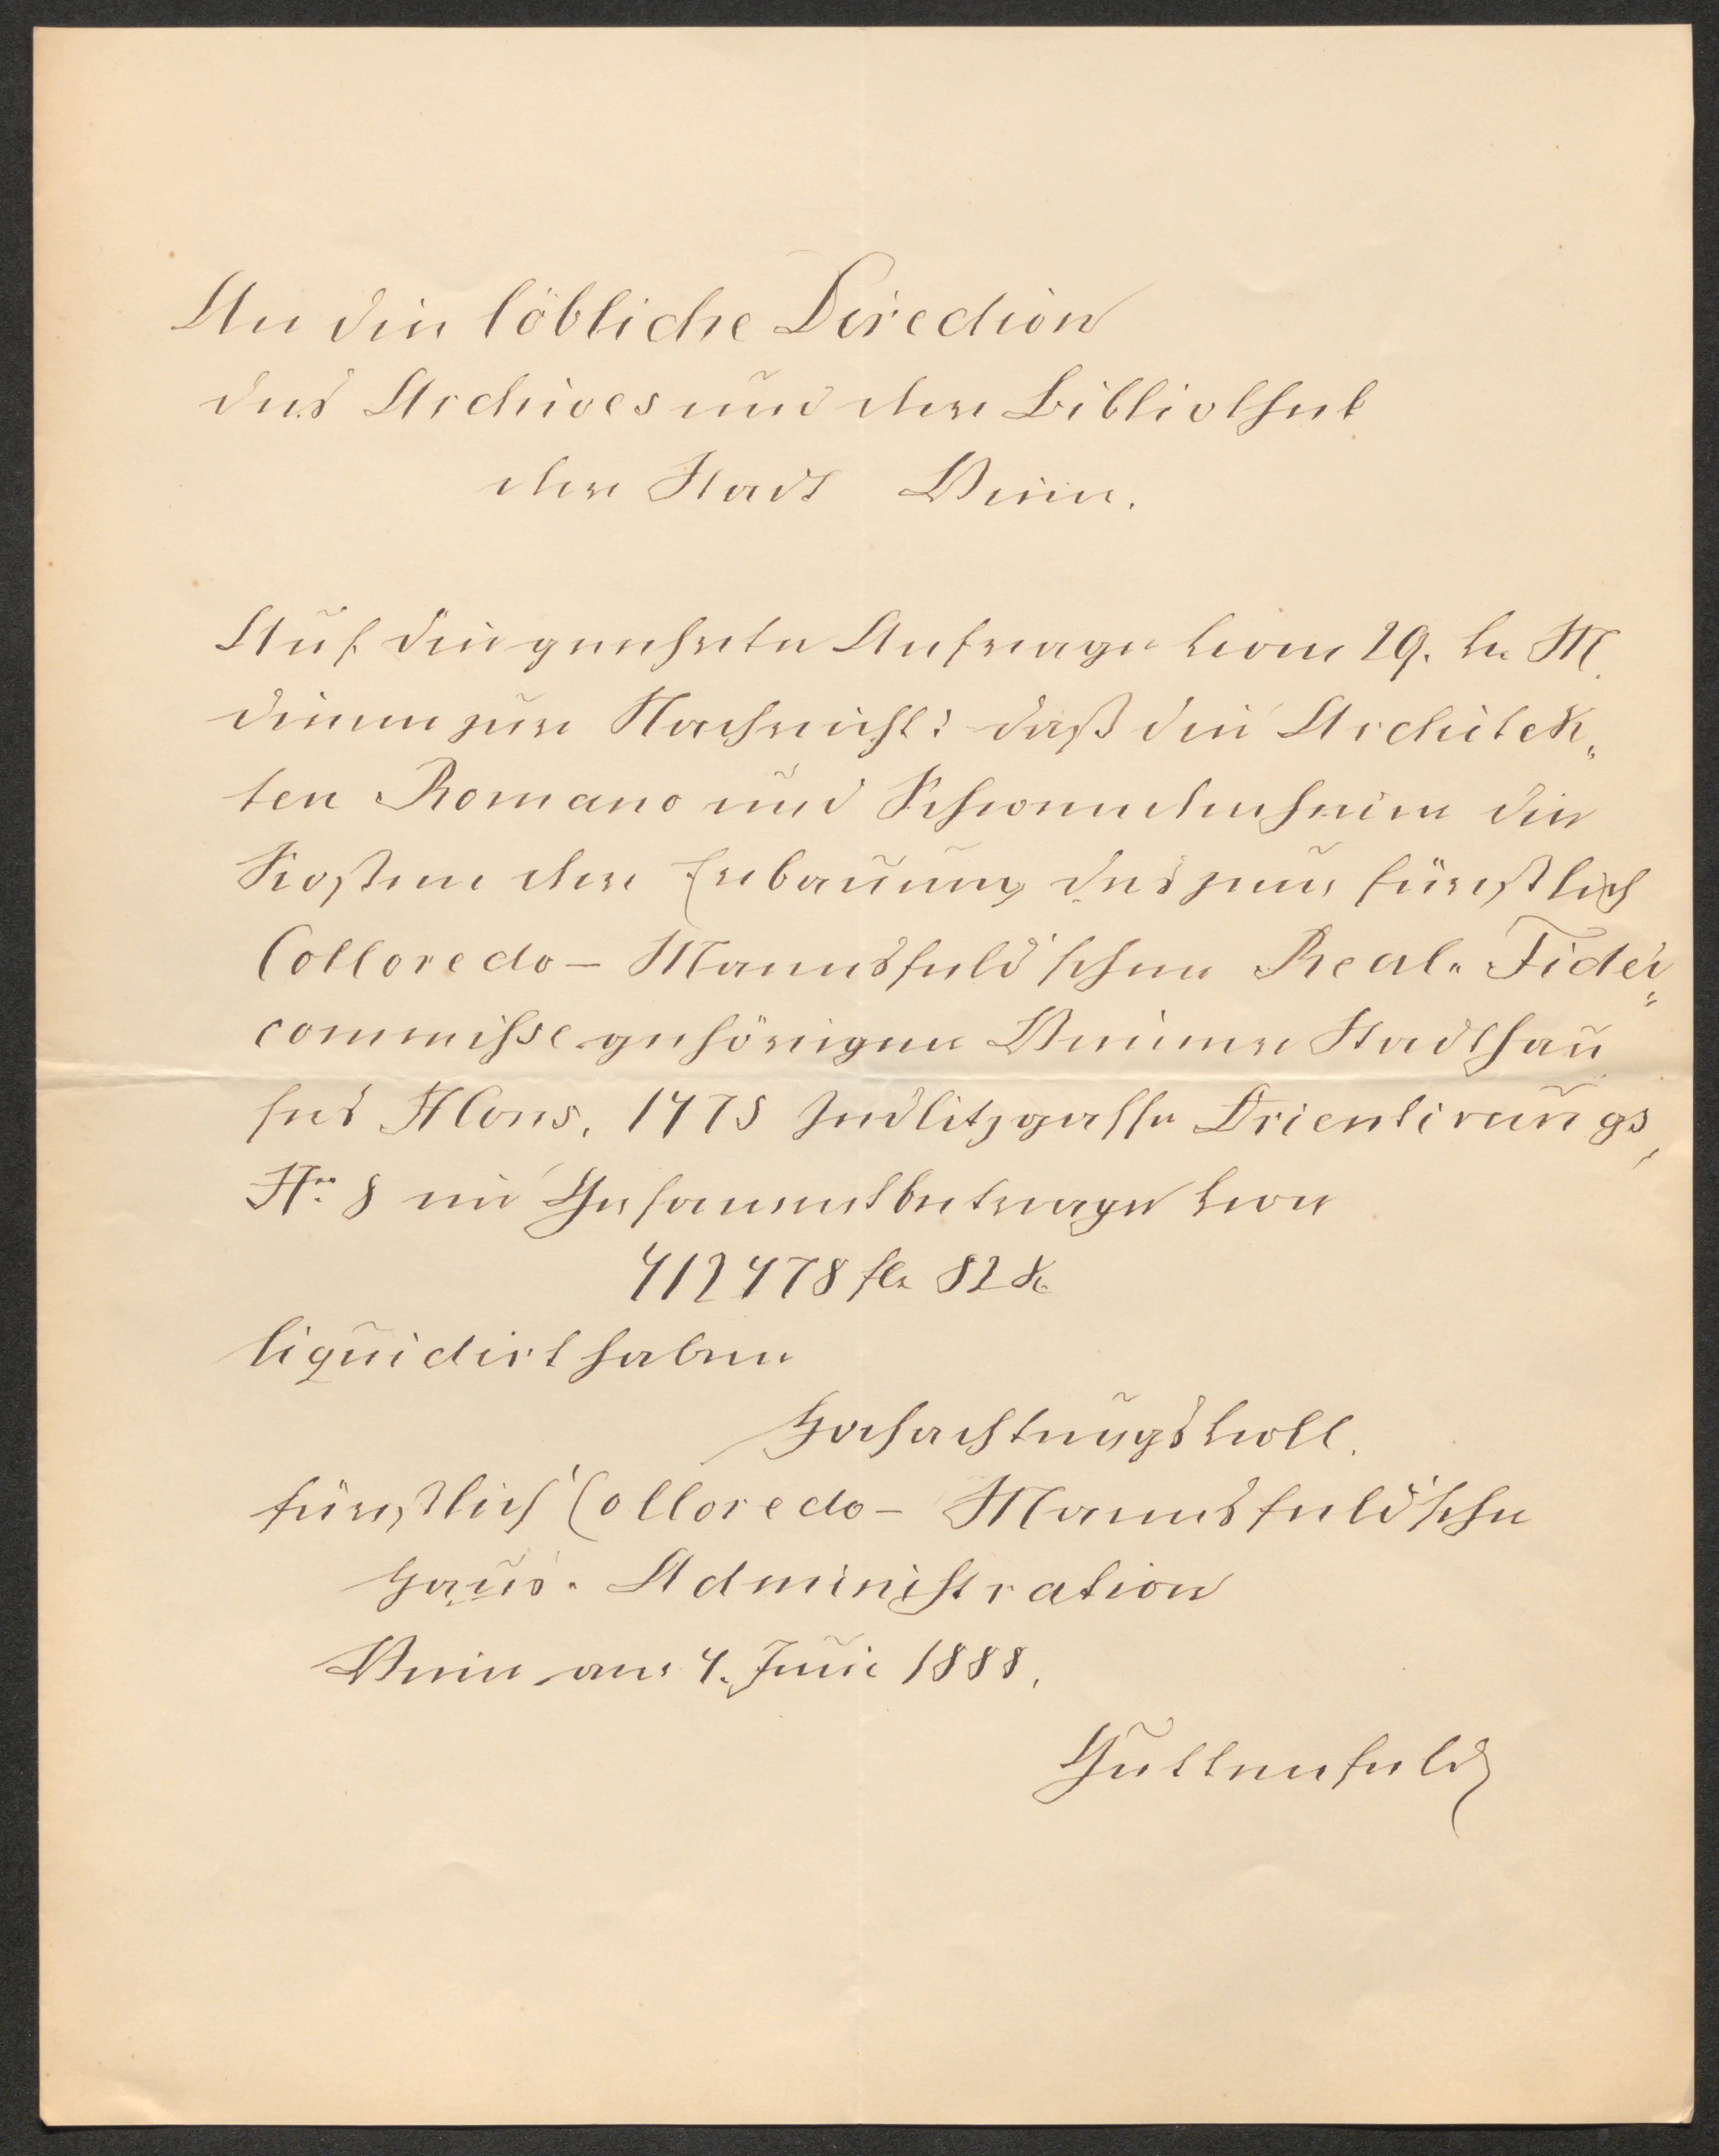 An die löbliche Direction
des Archives und der Bibliothek
der Stadt Wien.
Auf die geehrte Anfrage vom 29. v. M.
dienen zur Nachricht: daß die Architek„
ten Romano und Schwendenheim die
Kosten der Erbauung des zum fürstlich
Colloredo-Mannsfeld'schen Real„Fidei„
commisse gehörigen Wiener Stadthau
ses NCons. 1475 Zedlitzgasse Orientirungs„
Nr. 8 im Gesammtbetrage von
412478 fl. 82 k.
liquidirt haben
Hochachtungsvoll.
fürstlich Colloredo-Mannsfeld'sche
Haus-Administration
Wien am 4. Juni 1888.
Guttenfeld